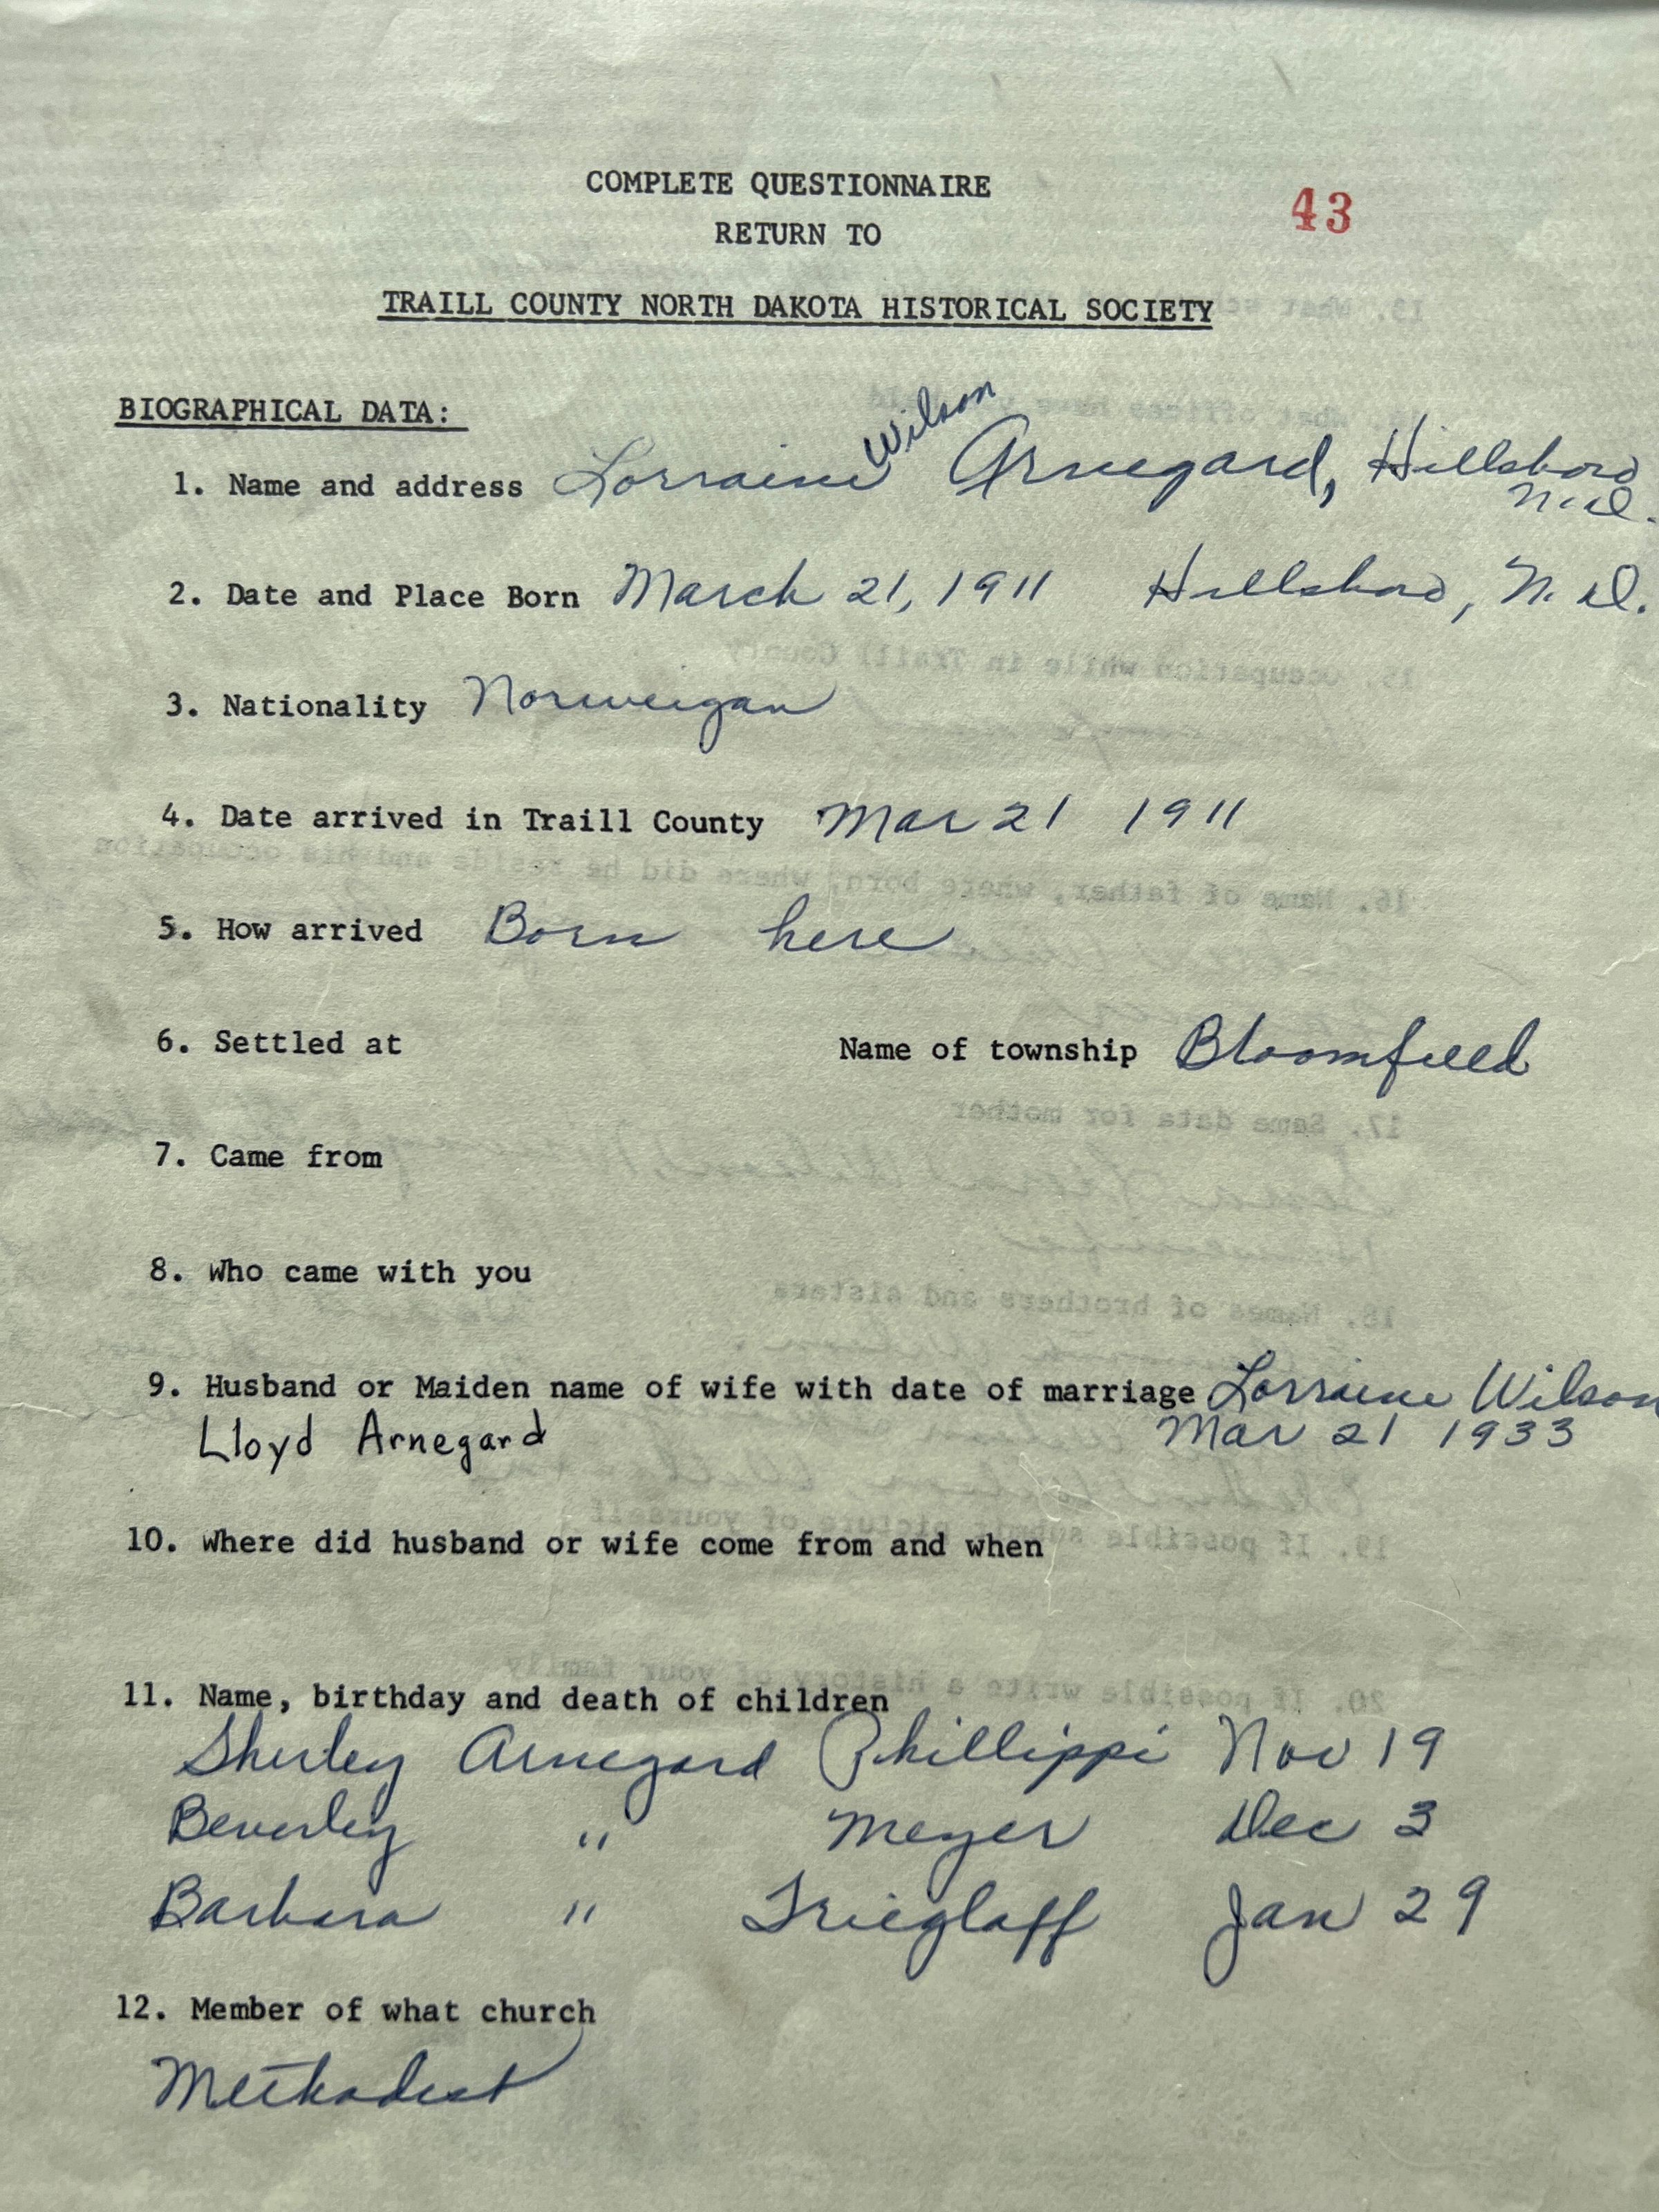 COMPLETE QUESTIONNAIRE
43
RETURN TO
TRAILL COUNTY NORTH DAKOTA HISTORICAL SOCIETY
BIOGRAPHICAL DATA:
1. Name and address Lorraine Wilson Arnegard, Hillsboro
N.D.
2. Date and Place Born March 21, 1911 Hillsboro, N.D.
3. Nationality Norweigan
4. Date arrived in Traill County Mar 21 1911
5. How arrived Born here
6. Settled at Name of township Bloomfield
7. Came from
8. Who came with you
9. Husband or Maiden name of wife with date of marriage Lorraine Wilson
Lloyd Arnegard Mar 21 1933
10. Where did husband or wife come from and when
11. Name, birthday and death of children
Shirley Arnegard Phillippi Nov 19
Beverley " Meyer Dec 3
Barbara " Trieglaff Jan 29
12. Member of what church
Methodist